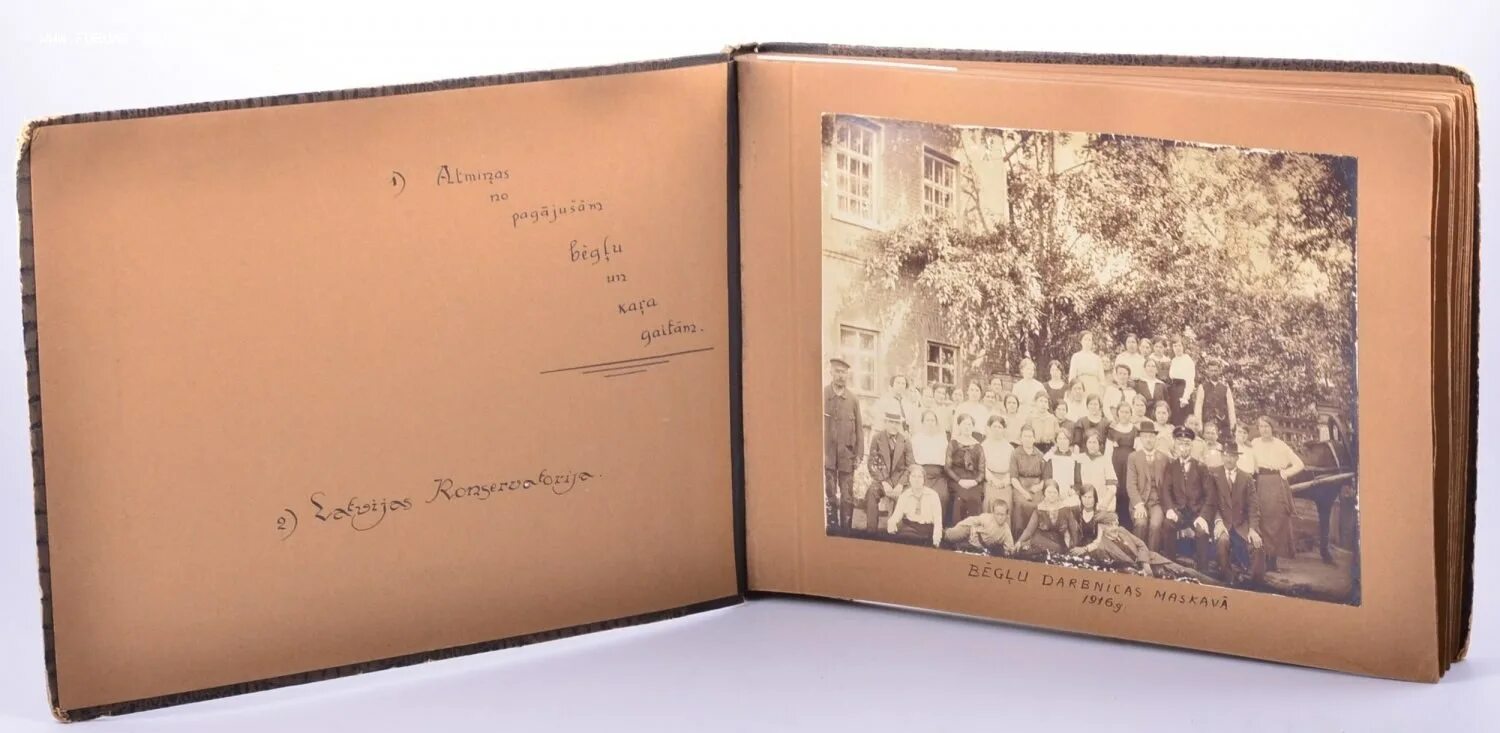 1) Atmiņas
no
pagājušām
bēgļu
un
kaŗa
gaitām.
2) Latvijas Konservatorija.
BĒGĻU DARBNICAS MASKAVĀ
1916g.